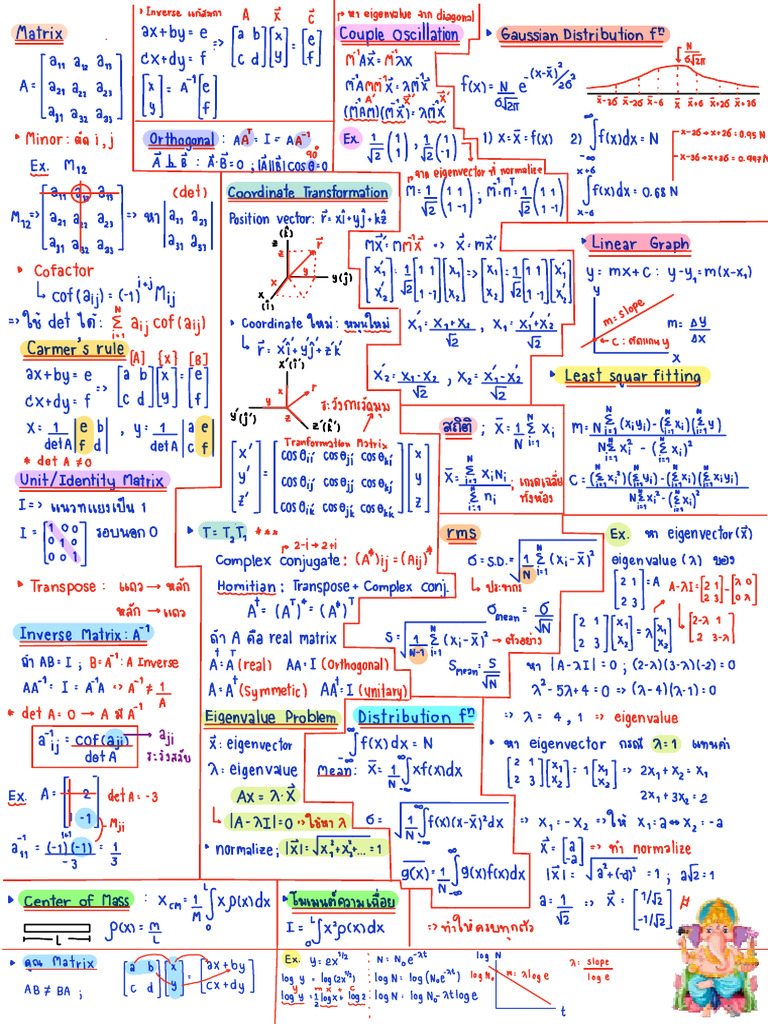 Matrix
A = [a11 a12 a13
a21 a22 a23
a31 a32 a33]
• Minor : ตัด i, j
Ex. M12
(det)
M12 => [a11 a12 a13
a21 a22 a23
a31 a32 a33] => หา |a21 a23
a31 a33|
• Cofactor
↳ cof(aij) = (-1)^i+j Mij
=> ใช้ det ได้ : Σ aij cof(aij)
Carmer's rule
[A] {x} [B]
ax+by = e
cx+dy = f => [a b
c d][x
y] = [e
f]
x = 1/detA |e b
f d| , y = 1/detA |a e
c f|
* det A ≠ 0
Unit/Identity Matrix
I => แนวทแยงเป็น 1
I = [1 0 0
0 1 0
0 0 1] รอบนอก 0
• Transpose : แถว → หลัก
หลัก → แถว
Inverse Matrix : A^-1
ถ้า AB = I ; B = A^-1 : A Inverse
AA^-1 = I = A^-1A => A^-1 ≠ 1/A
* det A = 0 → A ไม่มี A^-1
a^-1 ij = cof(aji)/det A → aji
ระวังสลับ
Ex. A = [1 2
-1] det A = -3
Mji
a11^-1 = (-1)(-1)/-3 = 1/3
• Inverse แก้สมการ
A x C
ax+by = e
cx+dy = f => [a b
c d][x
y] = [e
f]
[x
y] = A^-1 [e
f]
Orthogonal : AA^T = I = AA^-1
A ⊥ B : A·B = 0 ; |A||B|cosθ = 0
90°
Coordinate Transformation
Position vector : r = xi+yj+kz
z (k)
r
y (j)
x (i)
• Coordinate ใหม่ : หมุนใหม่
↳ r = x'i'+y'j'+z'k'
x'(i')
y'(j')
z'(k')
ระวังการวัดมุม
Transformation Matrix
[x'
y'
z'] = [cosθii' cosθji' cosθki'
cosθij' cosθjj' cosθkj'
cosθik' cosθjk' cosθkk'][x
y
z]
• T = T2T1 ***
2-i → 2+i
Complex conjugate : (A*)ij = (Aij)*
Homitian : Transpose + Complex conj.
A† = (A^T)* = (A*)^T
ถ้า A คือ real matrix
A† = A^T (real) AA^T = I (Orthogonal)
A = A† (Symmetic) AA† = I (unitary)
Eigenvalue Problem
x : eigenvector
λ = eigenvalue
Ax = λ·x
↳ |A-λI| = 0 => ใช้หา λ
• normalize ; |x| = √x1²+x2²+... = 1
• หา eigenvalue จาก diagonal
Couple Oscillation
M^-1Ax = M^-1λx
M^-1AMM^-1x = λM^-1x
A' x' x'
(M^-1AM)(M^-1x) = λM^-1x
Ex. 1/√2 (1
1) , 1/√2 (1
-1)
จาก eigenvector ที่ normalize
M = 1/√2 (1 1
1 -1), M^-1 = M^T = 1/√2 (1 1
1 -1)
Mx' = MM^-1x => x = Mx'
[x1'
x2'] = 1/√2 [1 1
1 -1][x1
x2] => [x1
x2] = 1/√2 [1 1
1 -1][x1'
x2']
x1' = x1+x2/√2 , x1 = x1'+x2'/√2
x2' = x1-x2/√2 , x2 = x1'-x2'/√2
• Gaussian Distribution f^n
f(x) = N/σ√2π e^-(x-x̄)²/2σ²
N/σ√2π
x̄-3σ x̄-2σ x̄-σ x̄ x̄+σ x̄+2σ x̄+3σ
1) x = x̄ = f(x) 2) ∫f(x)dx = N
x̄-2σ → x̄+2σ = 0.95 N
x̄-3σ → x̄+3σ = 0.997 N
x+σ
∫f(x)dx = 0.68 N
x-σ
• Linear Graph
y = mx+c : y-y1 = m(x-x1)
y
m = slope
m = Δy/Δx
c : ตัดแกน y
x
• Least squar fitting
m = NΣ(xiyi)-(Σxi)(Σy)/NΣxi²-(Σxi)²
c = (Σxi²)(Σyi)-(Σxi)(Σxiyi)/NΣxi²-(Σxi)²
สถิติ ; x̄ = 1/N Σ xi
x̄ = Σ xiNi/Σ ni ; เกรดเฉลี่ย
ทั้งห้อง
rms
σ = S.D. = √1/N Σ(xi-x̄)²
↳ ประชากร
σmean = σ/√N
S = √1/N-1 Σ(xi-x̄)² → ตัวอย่าง
Smean = S/√N
Distribution f^n
∫f(x)dx = N
Mean : x̄ = 1/N ∫xf(x)dx
σ = √1/N ∫f(x)(x-x̄)²dx
g(x) = 1/N ∫g(x)f(x)dx
Ex. หา eigenvector(x)
eigenvalue (λ) ของ
[2 1
2 3] = A A-λI = [2 1
2 3]-[λ 0
0 λ]
[2 1
2 3][x1
x2] = λ[x1
x2] [2-λ 1
2 3-λ]
หา |A-λI| = 0 ; (2-λ)(3-λ)-(2) = 0
λ²-5λ+4 = 0 => (λ-4)(λ-1) = 0
=> λ = 4, 1 → eigenvalue
• หา eigenvector กรณี λ=1 แทนค่า
[2 1
2 3][x1
x2] = 1[x1
x2] => 2x1+x2 = x1
2x1+3x2 = 2
=> x1 = -x2 => ให้ x1 = a ↔ x2 = -a
x = [a
-a] => ทำ normalize
|x| = √a²+(-a)² = 1 ; a√2 = 1
a = 1/√2 => x = [1/√2
-1/√2] #
• Center of Mass : xCM = 1/M ∫xρ(x)dx
L
ρ(x) = m/L
โมเมนต์ความเฉื่อย
I = ∫x²ρ(x)dx
=> ทำให้ครบทุกตัว
• คูณ Matrix
AB ≠ BA ;
[a b
c d][x
y] = [ax+by
cx+dy]
Ex. y = 2x^1/2
log y = log(2x^1/2)
y m x c
log y = 1/2 log x + log 2
N = N0e^-λt
log N = log(N0e^-λt)
log N = log N0 - λt log e
log N
log N0
m = λ log e
t
λ = slope/log e